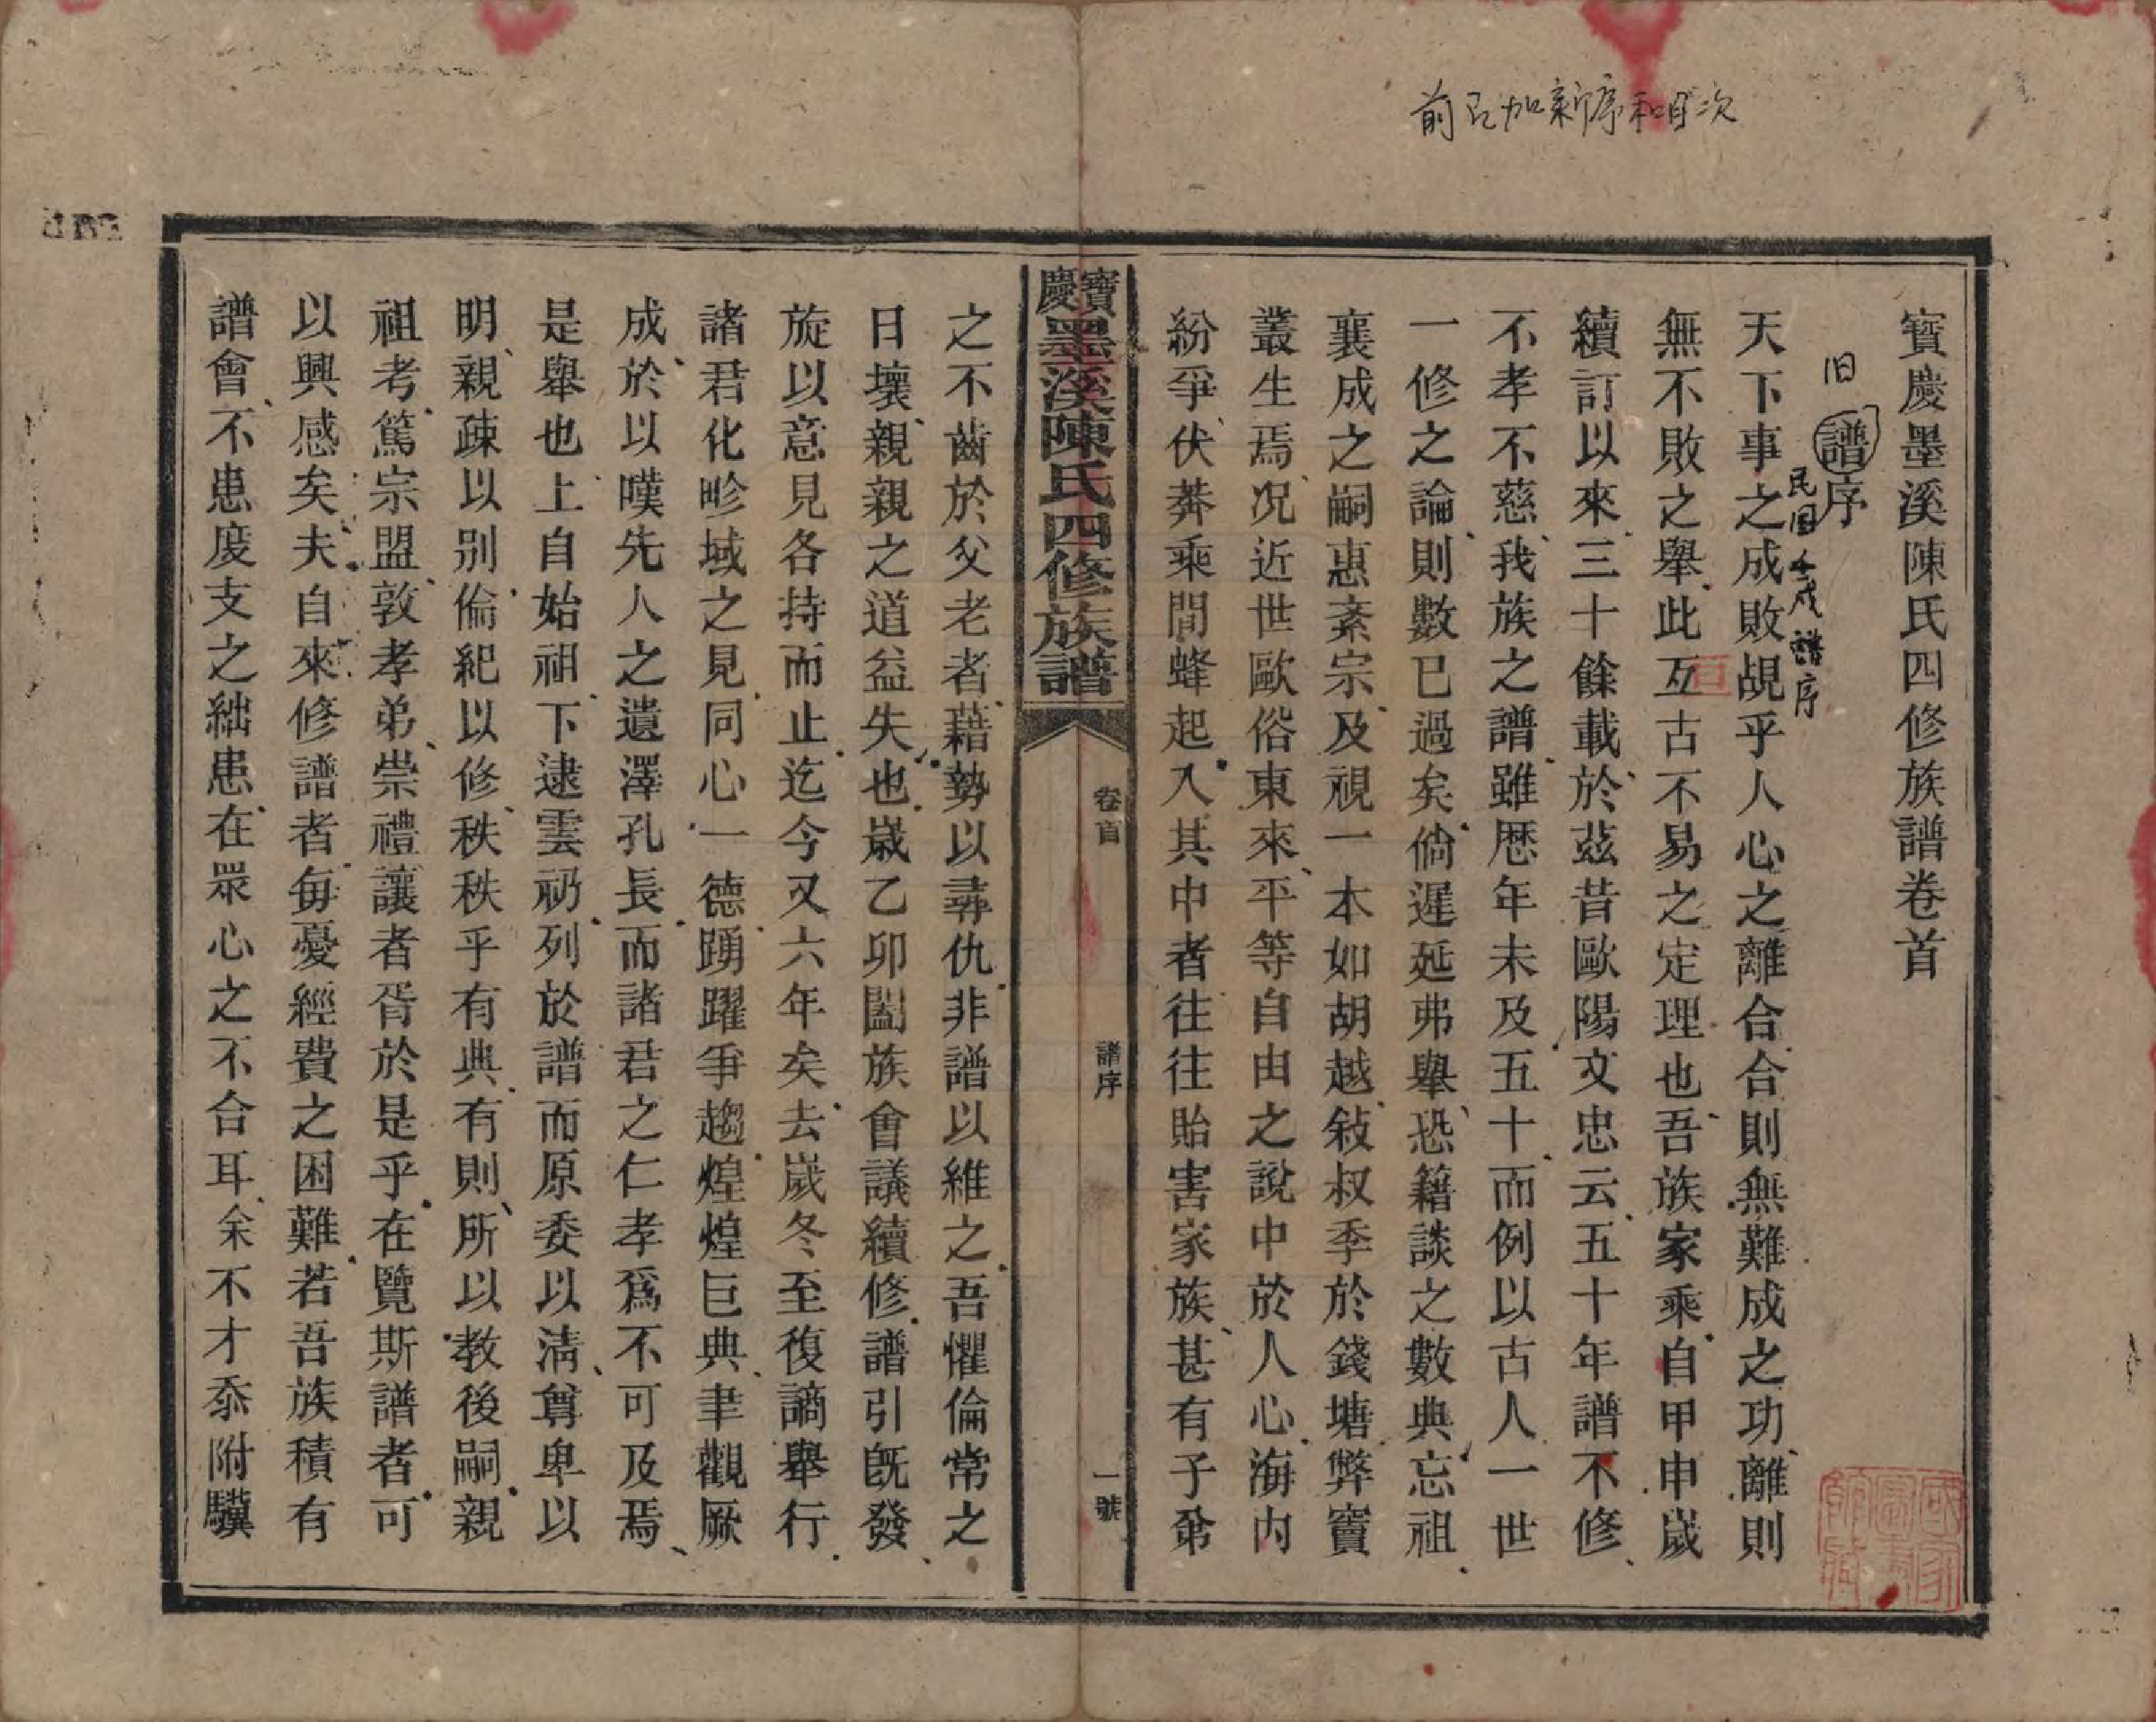 前已加新序和目次
寶慶墨溪陳氏四修族譜卷首
旧譜序
民国壬戌譜序
天下事之成敗覘乎人心之離合合則無難成之功離則
無不敗之舉此互古不易之定理也吾族家乘自甲申歲
亘
續訂以來三十餘載於茲昔歐陽文忠云五十年譜不修
不孝不慈我族之譜雖歷年未及五十而例以古人一世
一修之論則數已過矣倘遲延弗舉恐籍談之數典忘祖
襄成之嗣惠紊宗及視一本如胡越敍叔季於錢塘弊竇
叢生焉况近世歐俗東來平等自由之說中於人心海內
紛爭伏莽乘間蜂起入其中者往往貽害家族甚有子弟
寶慶墨溪陳氏四修族譜
卷首
譜序
一號
之不齒於父老者藉勢以尋仇非譜以維之吾懼倫常之
日壞親親之道益失也歲乙卯闔族會議續修譜引旣發
旋以意見各持而止迄今又六年矣去歲冬至復謫舉行
諸君化畛域之見同心一德踴躍爭趨煌煌巨典聿觀厥
成於以嘆先人之遺澤孔長而諸君之仁孝爲不可及焉
是舉也上自始祖下逮雲礽列於譜而原委以淸尊卑以
明親疎以别倫紀以修秩秩乎有典有則所以教後嗣親
祖考篤宗盟敦孝弟崇禮讓者胥於是乎在覽斯譜者可
以興感矣夫自來修譜者每憂經費之困難若吾族積有
譜會不患度支之絀患在眾心之不合耳余不才忝附驥